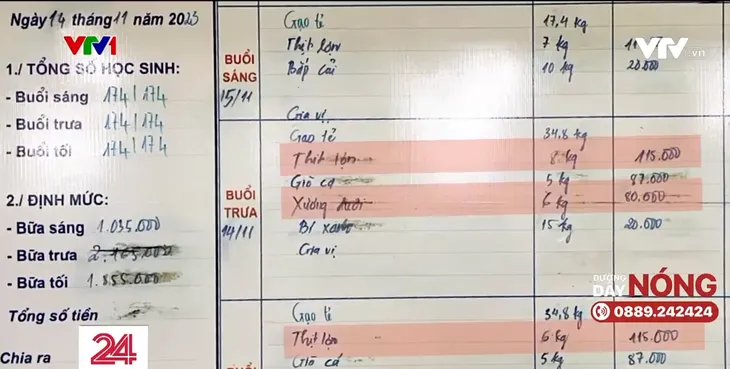 Ngày 14 tháng 11 năm 2025
VTV1
1./ TỔNG SỐ HỌC SINH:
- Buổi sáng 174 / 174
- Buổi trưa 174 / 174
- Buổi tối 174 / 174
2./ ĐỊNH MỨC:
- Bữa sáng 1.035.000
- Bữa trưa 2.165.000
- Bữa tối 1.855.000
Tổng số tiền
24
Chia ra
BUỔI SÁNG 15/11
Gạo tẻ 17,4 kg
Thịt lợn 7 kg
Bắp cải 10 kg 20.000
Gia vị
BUỔI TRƯA 14/11
Gạo tẻ 34.8 kg
Thịt lợn 8 kg 115.000
Giò cá 5 kg 87.000
Xương đuôi 6 kg 80.000
Bí xanh 15 kg 20.000
Gia vị
Gạo tẻ 34,8 kg
Thịt lợn 6 kg 115.000
Giò cá 5 kg 87.000
VTV.vn
ĐƯỜNG DÂY NÓNG
0889.242424